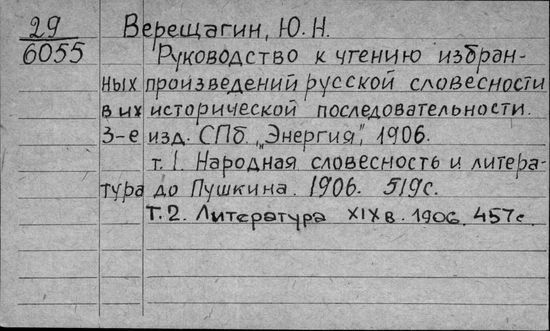 29 Верещагин, Ю. Н.
6055 Руководство к чтению избран-
ных произведений русской словесности
в их исторической последовательности.
3-е изд. СПб. „Энергия", 1906.
т. 1. Народная словесность и литера-
тура до Пушкина. 1906. 519с.
Т. 2. Литература XIX в. 1906. 457с.